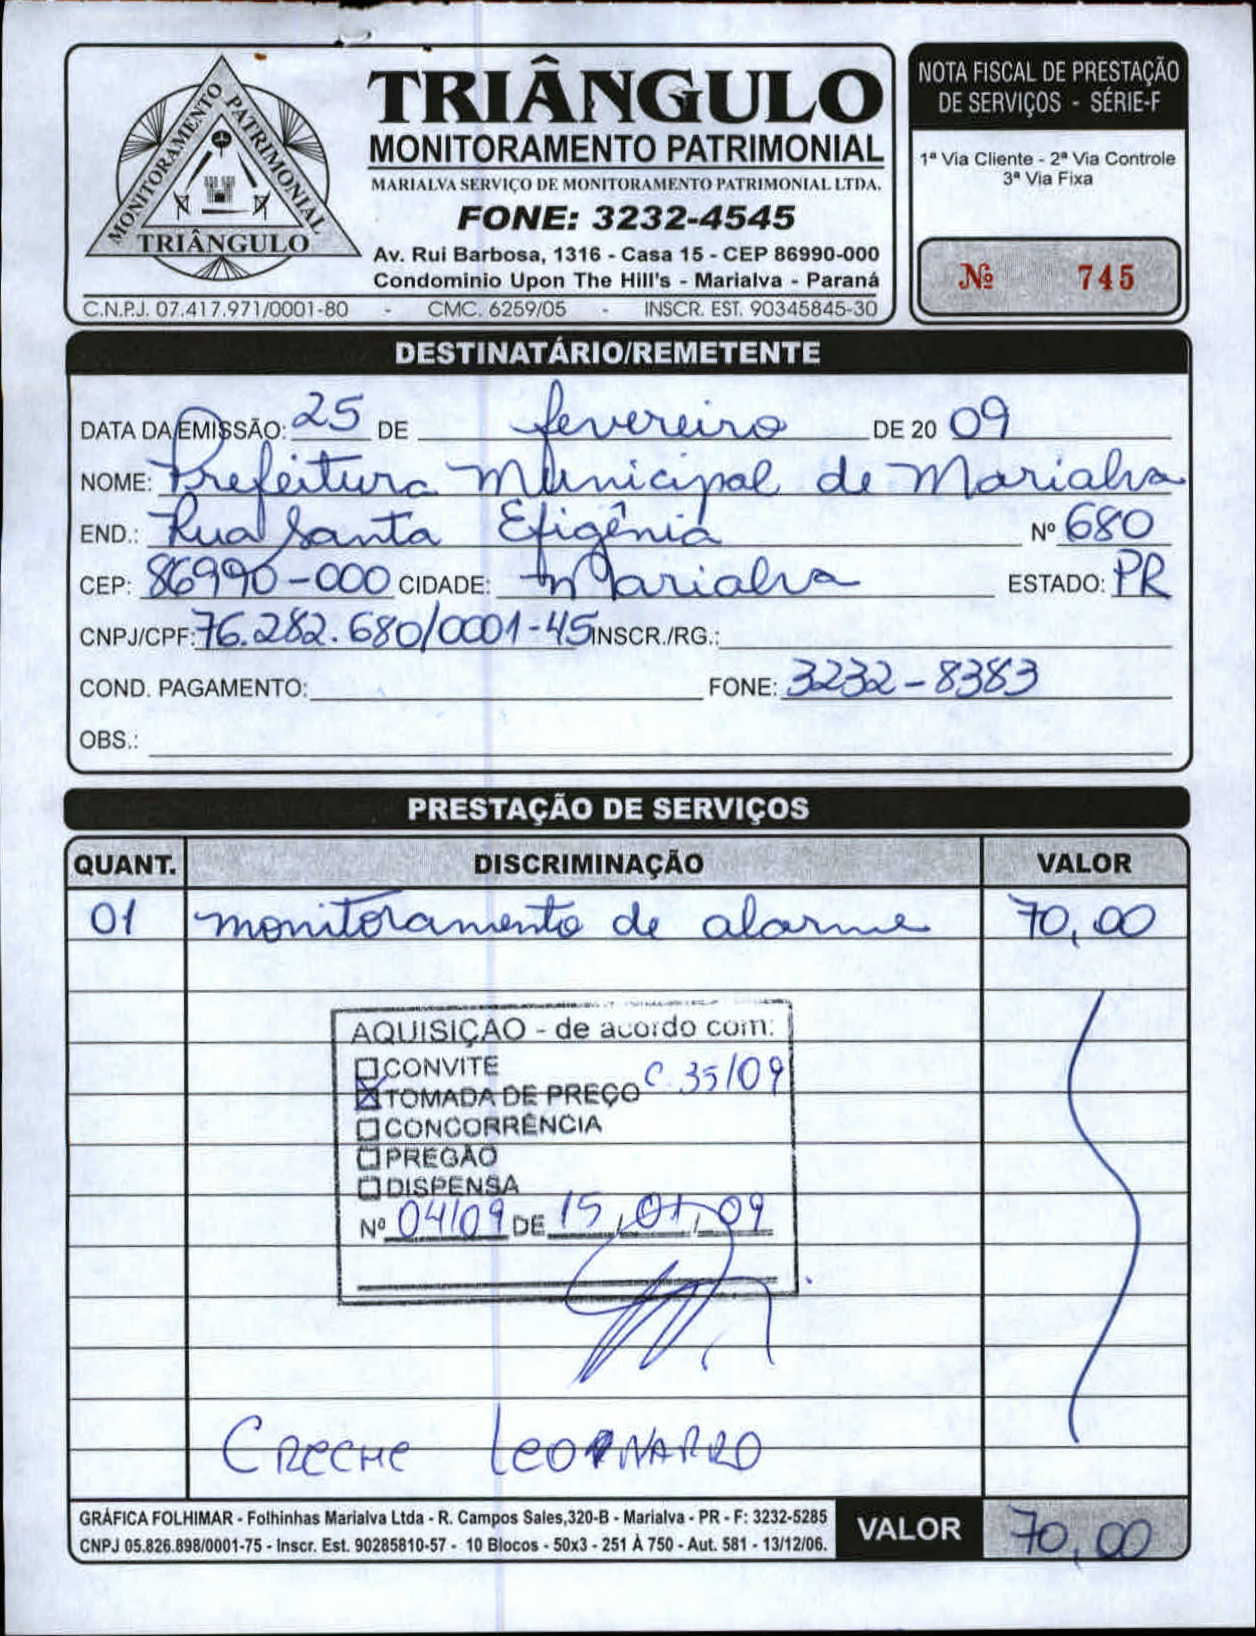 MONITORAMENTO PATRIMONIAL
TRIÂNGULO
TRIÂNGULO
MONITORAMENTO PATRIMONIAL
MARIALVA SERVIÇO DE MONITORAMENTO PATRIMONIAL LTDA.
FONE: 3232-4545
Av. Rui Barbosa, 1316 - Casa 15 - CEP 86990-000
Condominio Upon The Hill's - Marialva - Paraná
C.N.P.J. 07.417.971/0001-80 - CMC. 6259/05 - INSCR. EST. 90345845-30
NOTA FISCAL DE PRESTAÇÃO
DE SERVIÇOS - SÉRIE-F
1ª Via Cliente - 2ª Via Controle
3ª Via Fixa
Nº 745
DESTINATÁRIO/REMETENTE
DATA DA EMISSÃO: 25 DE fevereiro DE 20 09
NOME: Prefeitura Municipal de Marialva
END.: Rua Santa Efigênia Nº 680
CEP: 86990-000 CIDADE: Marialva ESTADO: PR
CNPJ/CPF: 76.282.680/0001-45 INSCR./RG.:
COND. PAGAMENTO: FONE: 3232-8383
OBS.:
PRESTAÇÃO DE SERVIÇOS
QUANT. DISCRIMINAÇÃO VALOR
01 monitoramento de alarme 70,00
AQUISIÇÃO - de acordo com:
CONVITE
TOMADA DE PREÇO C.35/09
CONCORRÊNCIA
PREGÃO
DISPENSA
Nº 04/09 DE 15/01/09
CRECHE LEONARDO
GRÁFICA FOLHIMAR - Folhinhas Marialva Ltda - R. Campos Sales,320-B - Marialva - PR - F: 3232-5285
CNPJ 05.826.898/0001-75 - Inscr. Est. 90285810-57 - 10 Blocos - 50x3 - 251 À 750 - Aut. 581 - 13/12/06.
VALOR 70,00